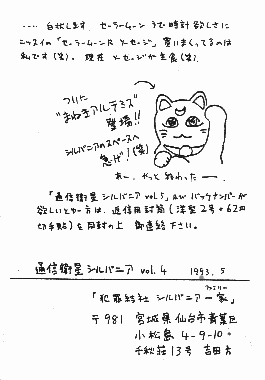 ---- 白状します。セーラームーンうで時計欲しさに
ニッスイの「セーラームーンR ソーセージ」買いまくってるのは
私です(笑)。現在 ソーセージが主食(笑)
ついに
"まねきアルテミス"
登場!!
シルバニアのスペースへ
急げ!(笑)
あー、やっと終わったー。
「通信衛星シルバニア vol.5」及び バックナンバーが
欲しいとゆー方は、返信用封筒(洋型2号+62円
切手貼)を同封の上、御連絡下さい。
通信衛星シルバニア vol.4 1993.5
「犯罪結社 シルバニア一家」
ファミリー
〒981 宮城県仙台市青葉区
小松島 4-9-10
千秋荘13号 吉田方